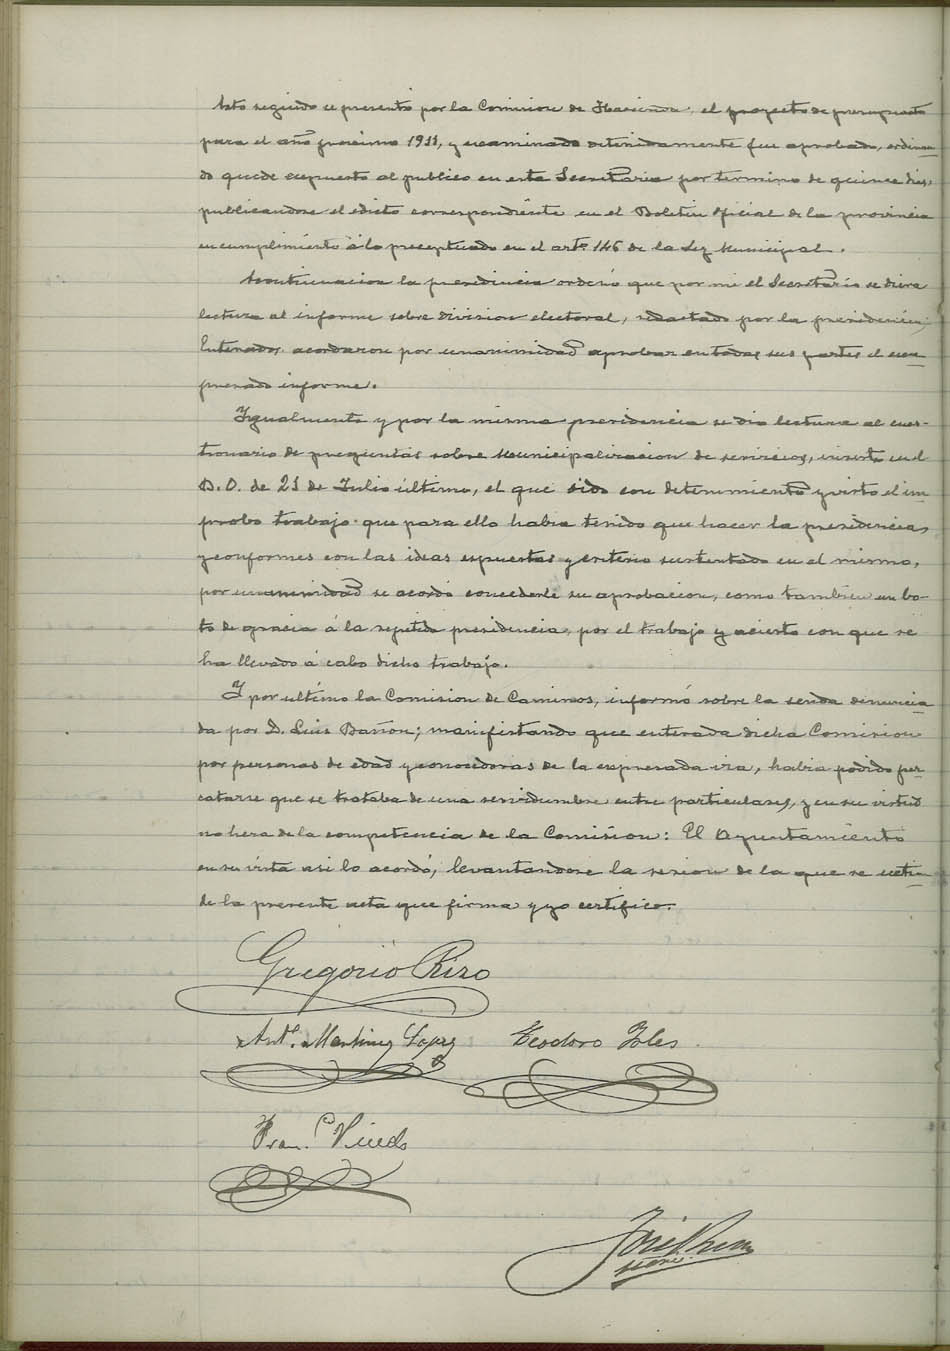 Acto seguido se presentó por la Comision de Hacienda, el proyecto de presupuesto
para el año proximo 1911, y examinado detenidamente fue aprobado, ordenan
do quede expuesto al publico en esta Secretaria por termino de quince dias,
publicandose el edicto correspondiente en el Boletin Oficial de la provincia
en cumplimiento á lo preceptuado en el artº 146 de la Ley Municipal.
Acontinuacion la presidencia ordenó que por mi el Secretario se diera
lectura al informe sobre division electoral, redactado por la presidencia;
Enterados acordaron por unanimidad aprobar en todas sus partes el ex
presado informe.
Igualmente y por la misma presidencia se dio lectura al cues-
tionario de preguntas sobre Municipalizacion de servicios, inserto en el
B. O. de 21 de Julio último, el que oido con detenimiento y visto el im
probo trabajo que para ello habia tenido que hacer la presidencia,
y conformes con las ideas expuestas y criterio sustentado en el mismo,
por unanimidad se acordó concederle su aprobacion, como tambien un bo-
to de gracia á la repetida presidencia, por el trabajo y acierto con que se
ha llevado á cabo dicho trabajo.
Y por último la Comision de Caminos, informó sobre la senda denuncia
da por D. Luis Bañon; manifestando que enterada dicha Comision
por personas de edad y conocedoras de la expresada via, habia podido per
catarse que se trataba de una servidumbre entre particulares, y en su virtud
no hera de la competencia de la Comision: El Ayuntamiento
en su vista asi lo acordó, levantandose la sesion de la que se extien
de la presente acta que firma y yo certifico.
Gregorio Rizo
Antº. Martinez Lopez Teodoro Toles
Franco
José